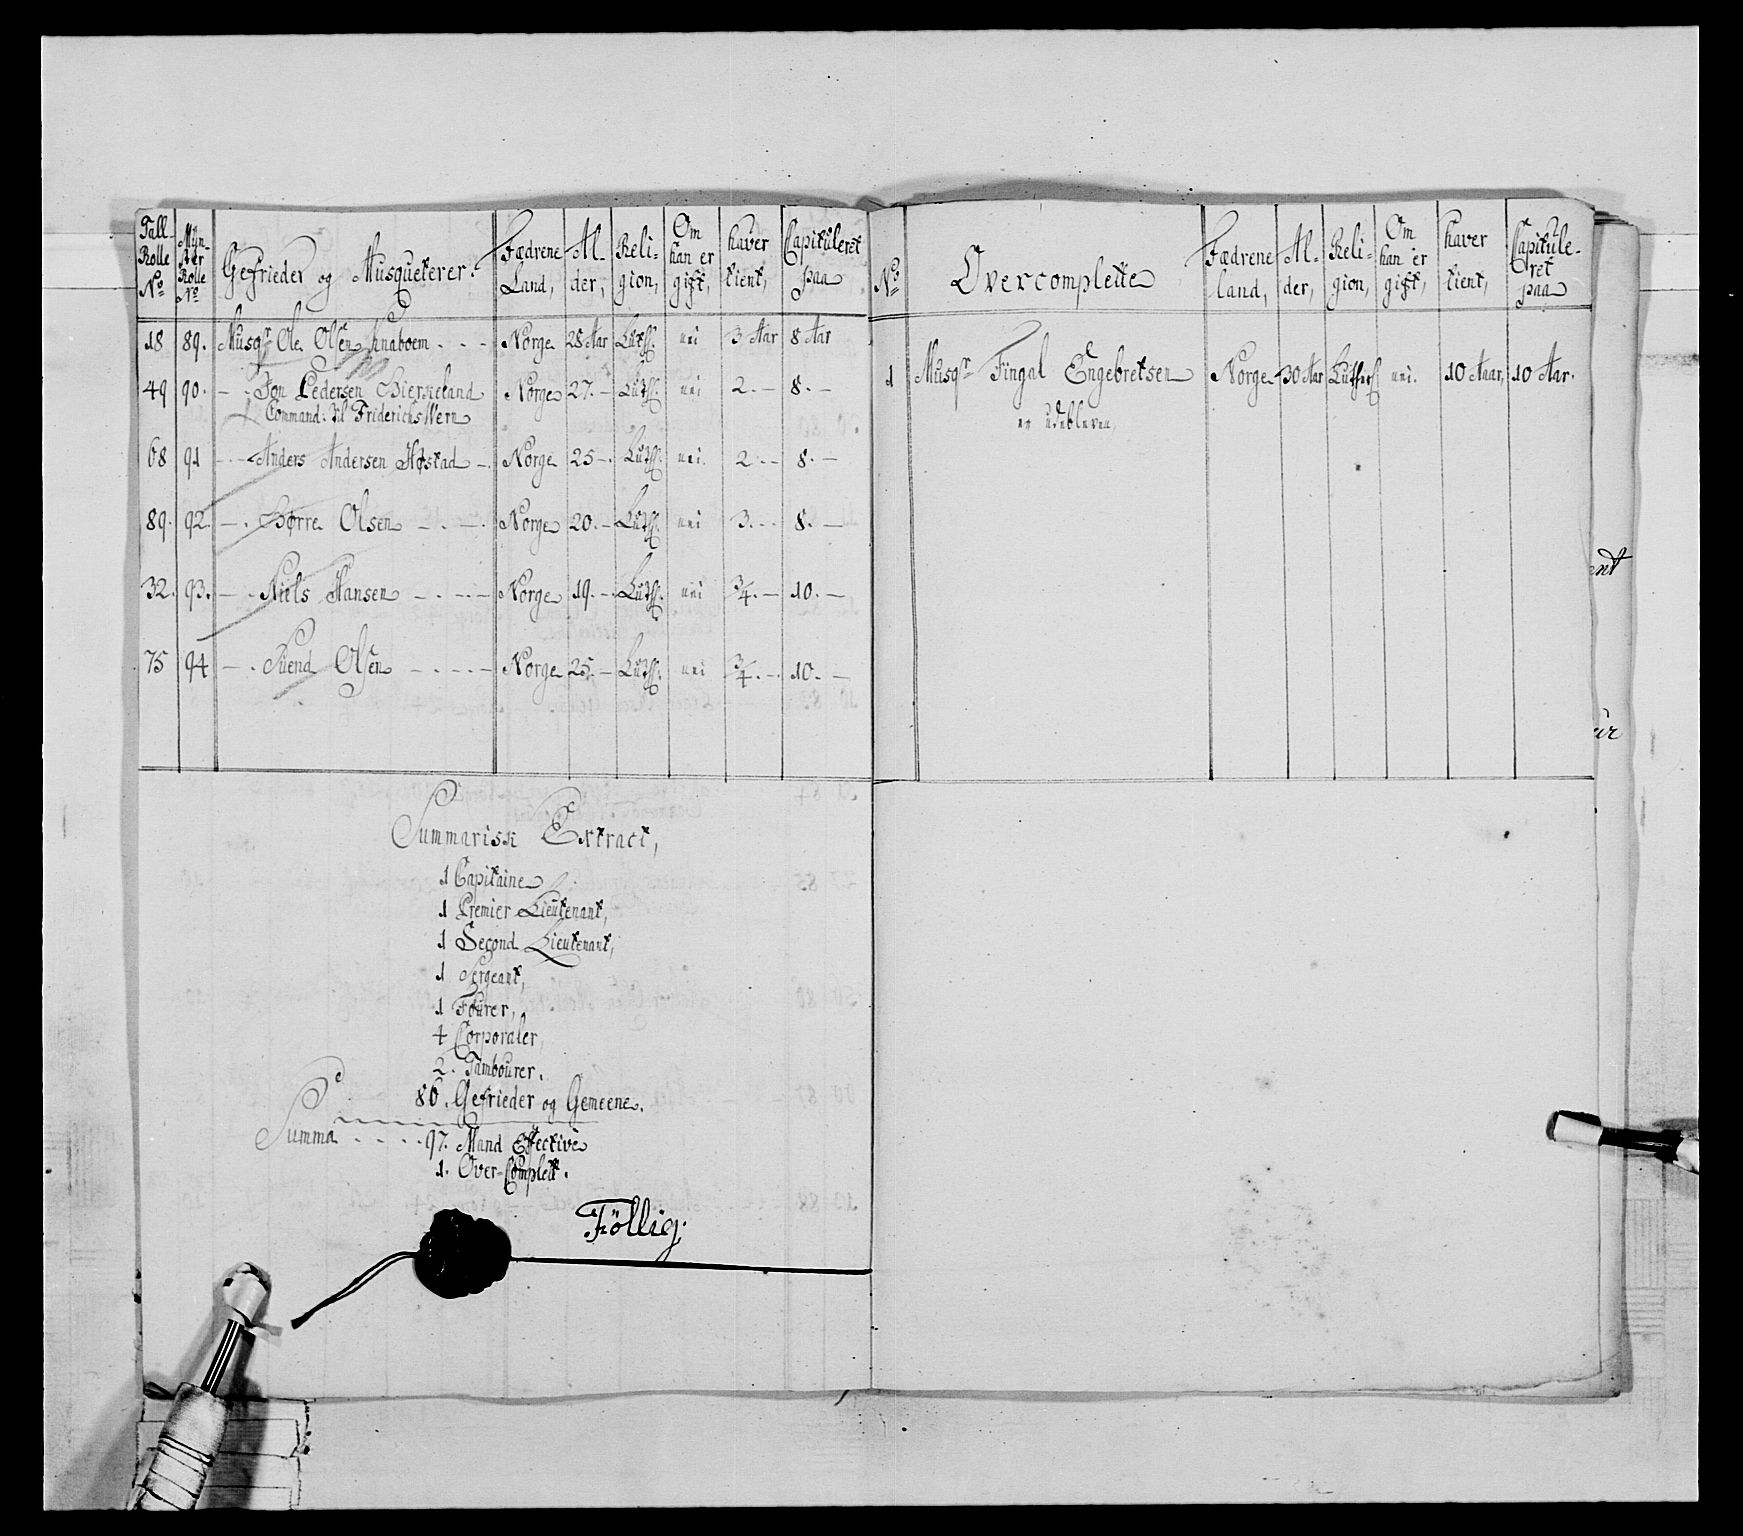 Tall-Rolle No | Mynster Rolle No | Gefrieder og Musqueterer. | Fædrene Land, | Al-der, | Reli-gion, | Om han er gift, | haver tient, | Capituleret paa
18 | 89. | Musqr Ole Olsen Knaboem . - - | Norge | 28 Aar | Luth: | nei | 3 Aar | 8 Aar
49 | 90. | - . Jon Pedersen Bierkeland | Norge | 27. - | Luth: | nei | 2. - | 8. -
Command: til FriderichsWern
68 | 91 | - . - Anders Andersen Høstad - . | Norge | 25 - . | Luth: | nei. | 2. - | 8. -
89. | 92. | - . Børre Olsen - . - . | Norge | 20. - | Luth: | nei | 3. - . | 8. -
32. | 93. | - . Niels Hansen - . - . - | Norge | 19. - . | Luth: | nei | 3/4. - | 10. -
75 | 94 | - . Svend Olsen - . - . - | Norge | 25. - | Luth: | nei | 3/4. - . | 10. -
Summarisk Extract,
1 Capitaine
1 Premier Lieutenant,
1 Second Lieutenant,
1 Sergeant,
1 Fourer,
4 Corporaler,
2. Tambourer.
86. Gefrieder og Gemeene.
Summa . . . . 97. Mand Effective
1. Over-Complett.
Föllig:
No | Overcomplette | Fædrene land, | Al-der, | Reli-gion, | Om han er gift, | haver tient, | Capitule-ret paa
1 | Musqr Fingal Engebretsen | Norge | 30 Aar | Luther: | nei. | 10 Aar, | 10 Aar.
er udebleven,